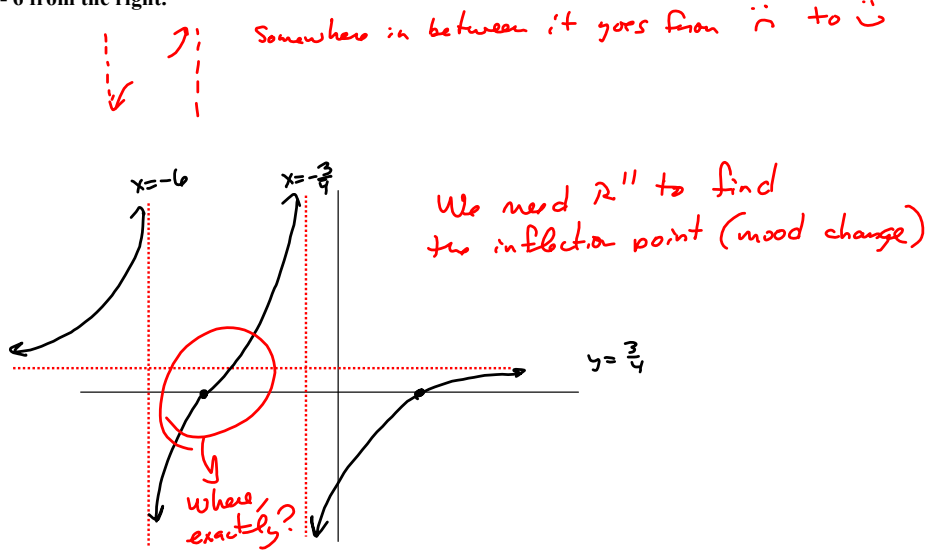 - 6 from the right.
Somewhere in between it goes from ∩̈ to ∪̈
x=-6
x=-3/4
We need R'' to find
the inflection point (mood change)
y=3/4
where,
exactly?